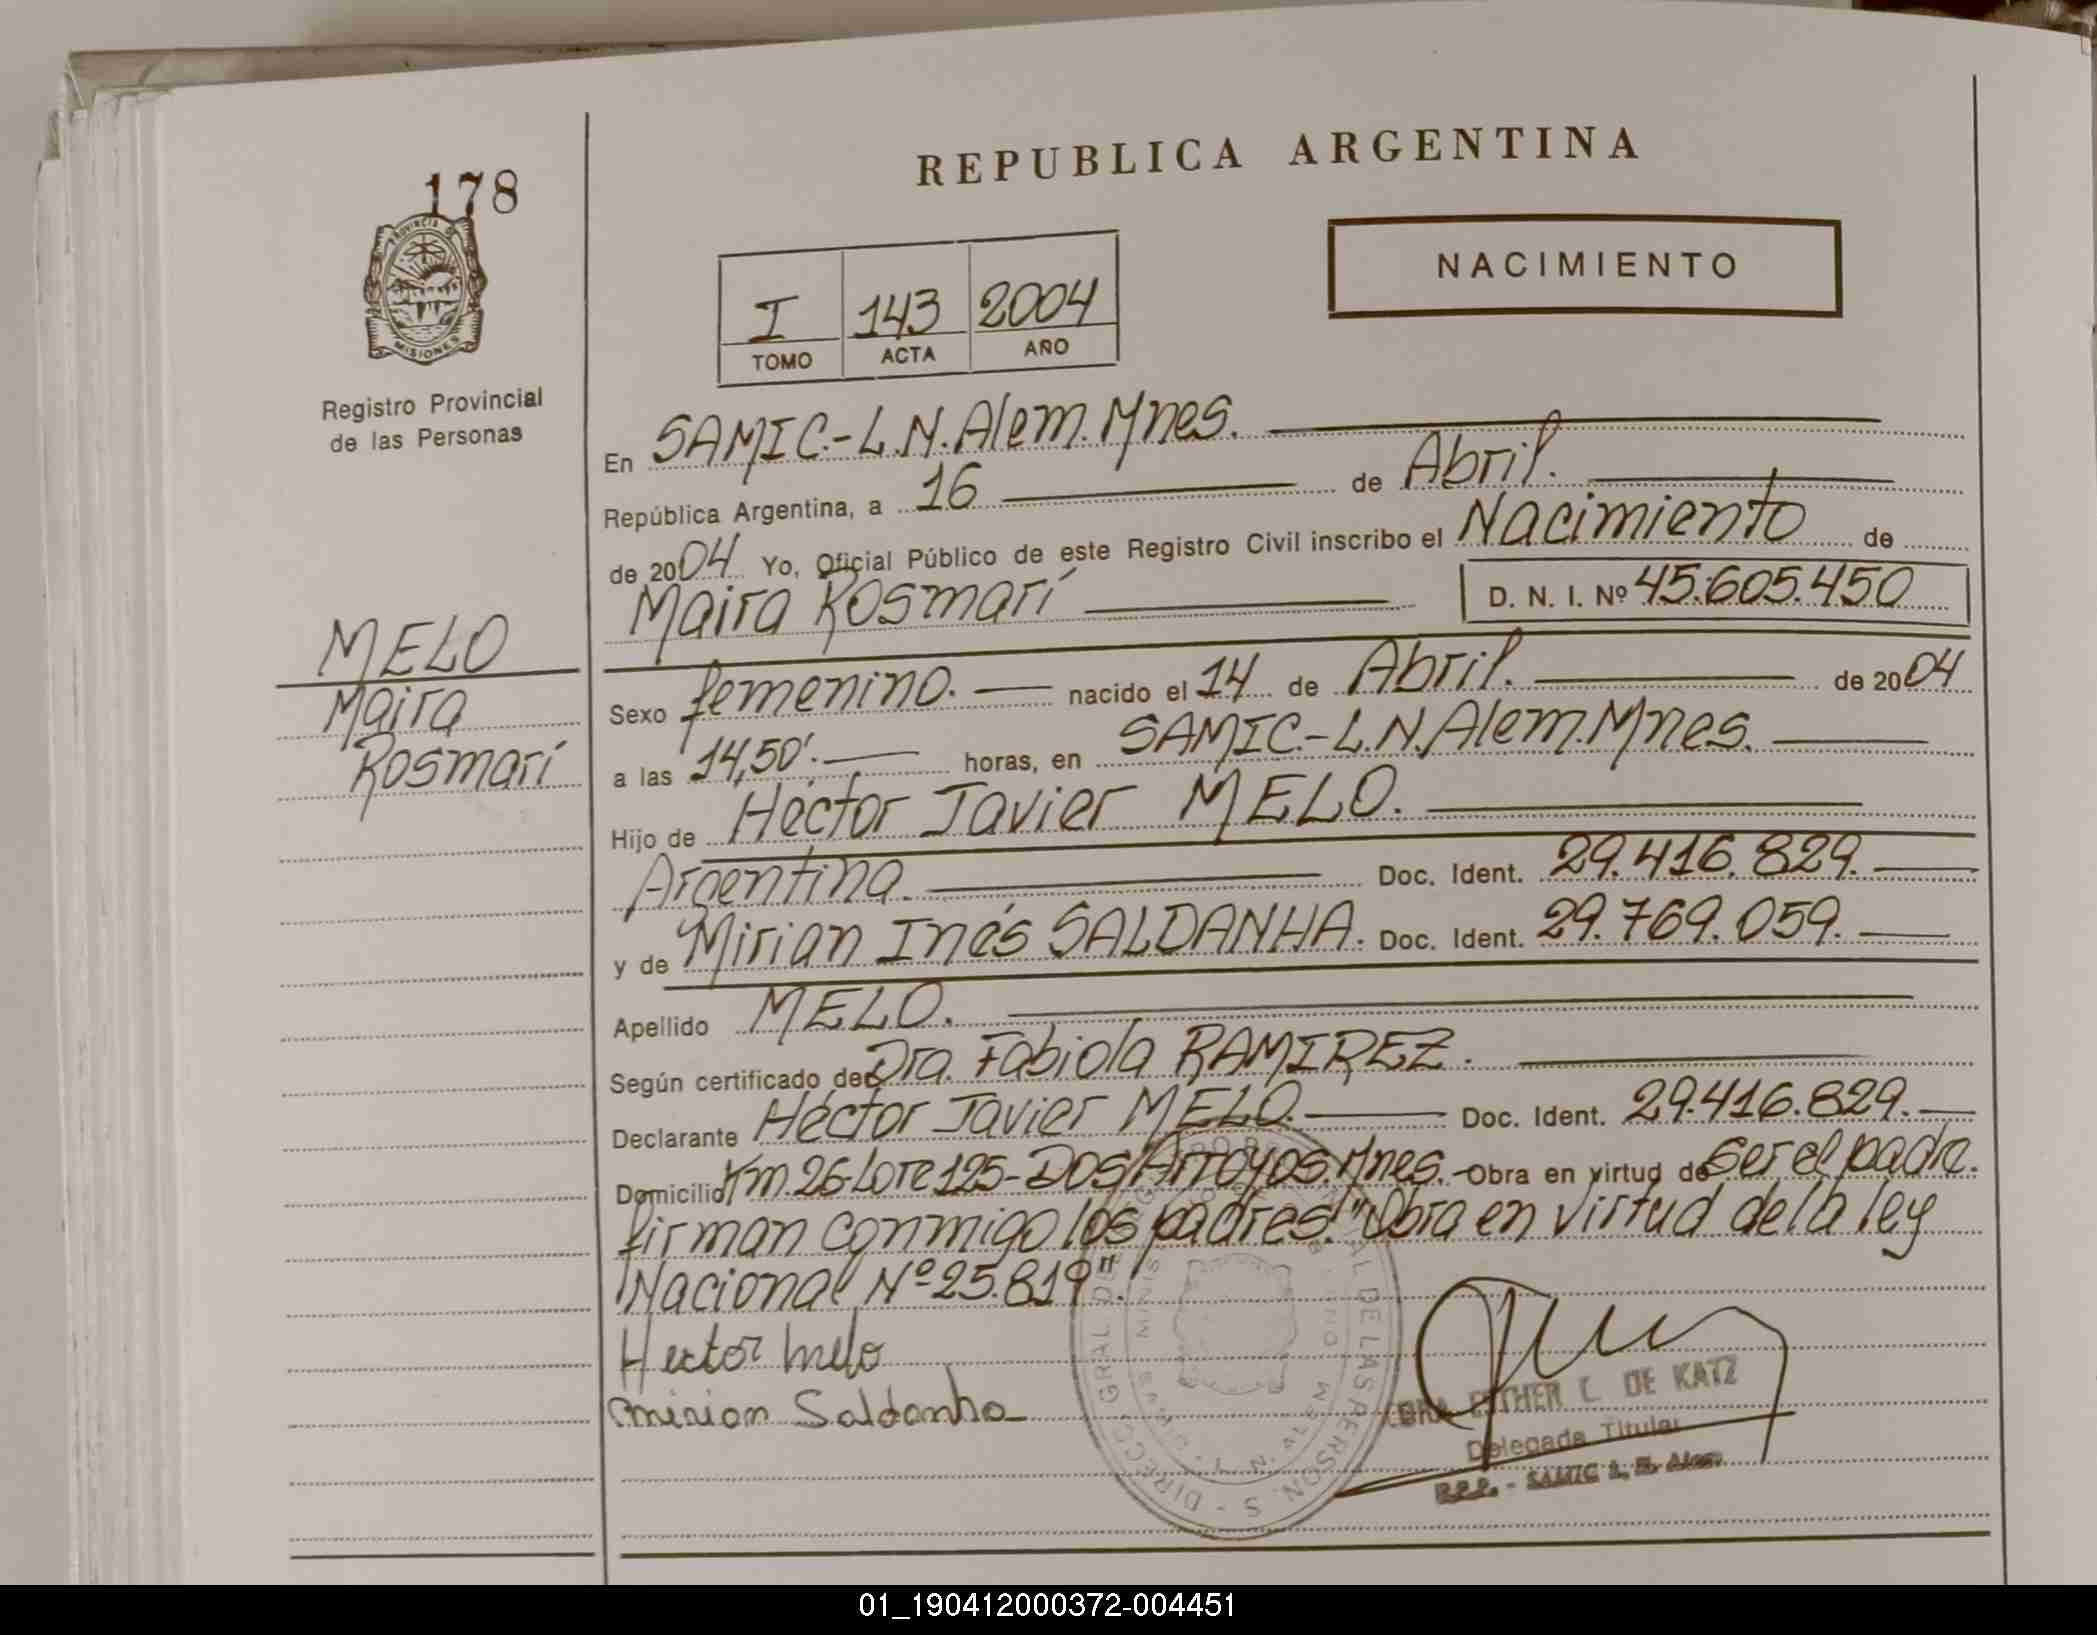 178
PROVINCIA DE
MISIONES
Registro Provincial
de las Personas
MELO
Maira
Rosmarí
REPUBLICA ARGENTINA
NACIMIENTO
I 143 2004
TOMO ACTA AÑO
En SAMIC.-L.N.Alem.Mnes.
República Argentina, a 16 de Abril.
de 2004 Yo, Oficial Público de este Registro Civil inscribo el Nacimiento de
Maira Rosmarí D. N. I. Nº 45.605.450
Sexo femenino. nacido el 14 de Abril. de 2004
a las 14,50'. horas, en SAMIC.-L.N.Alem.Mnes.
Hijo de Héctor Javier MELO.
Argentina. Doc. Ident. 29.416.829.
y de Mirian Inés SALDANHA. Doc. Ident. 29.769.059.
Apellido MELO.
Según certificado de: Dra. Fabiola RAMIREZ.
Declarante Héctor Javier MELO. Doc. Ident. 29.416.829.
Domicilio Km.26-Lote 125-DOS Arroyos.Mnes. Obra en virtud de Ser el padre.
firman conmigo los padres. "Obra en virtud de la ley
Nacional Nº 25.819".
Hector melo
mirian Saldanha
ESTHER L. DE KATZ
Delegada Titular
R.P.P. - SAMIC L. N. Alem
01_190412000372-004451